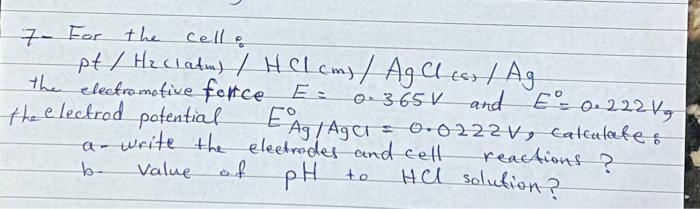 7- For the cell:
pt / H2(1atm) / HCl (m) / AgCl (s) / Ag
the electromotive force E = 0.365V and E° = 0.222V,
the electrod potential E°Ag/AgCl = 0.0222V, calculate:
a- write the electrodes and cell reactions ?
b- Value of pH to HCl solution?